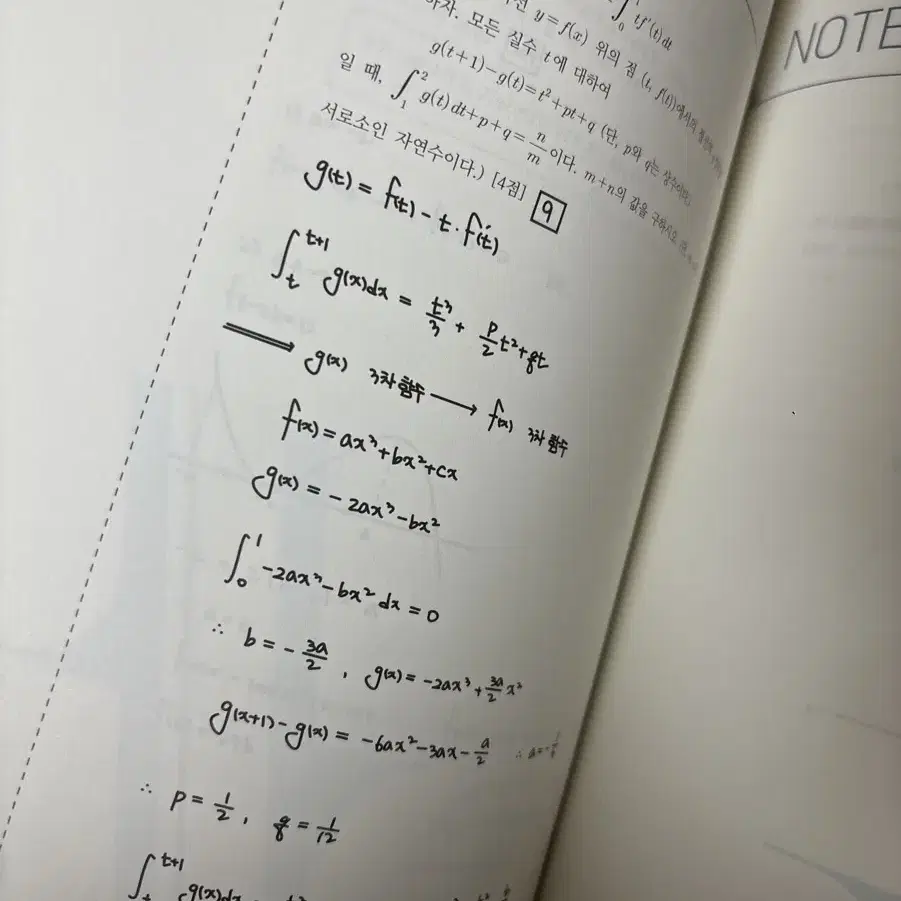 ∫₀¹ tf′(t)dt
y=f(x) 위의 점 (t, f(t))에서의
하자. 모든 실수 t에 대하여
g(t+1)−g(t)=t²+pt+q (단, p와 q는 상수이다.)
일 때, ∫₁² g(t)dt+p+q=n/m이다. m+n의 값을 구하시오.
서로소인 자연수이다.) [4점] 9
g(t) = f(t) − t · f′(t)
∫ₜᵗ⁺¹ g(x)dx = t³/3 + p/2 t² + qt
⟹ g(x) 3차 함수 ⟶ f(x) 3차 함수
f(x) = ax³+bx²+cx
g(x) = −2ax³−bx²
∫₀¹ −2ax³−bx² dx = 0
∴ b = −3a/2 , g(x) = −2ax³+3a/2 x²
g(x+1)−g(x) = −6ax²−3ax−a/2 ∴ a=−1/6
∴ p = 1/2 , q = 1/12
∫ₜᵗ⁺¹ g(x)dx
NOTE